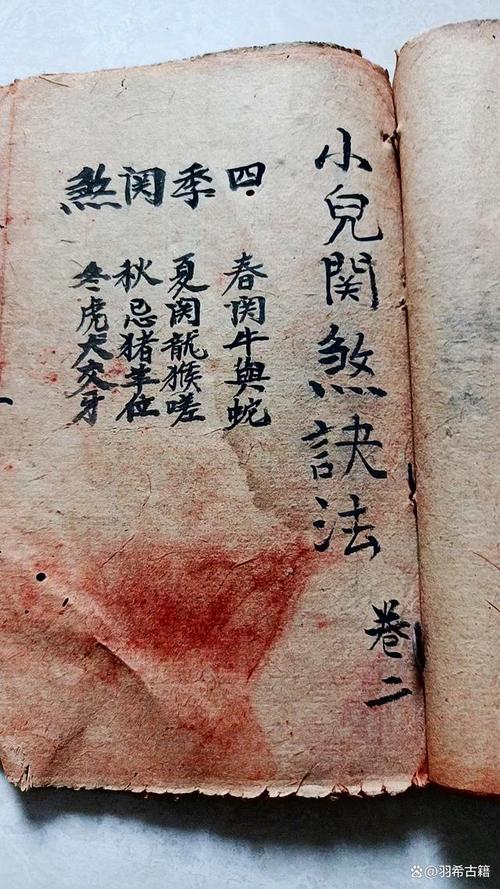 小兒関煞訣法
卷二
四季関煞
春関牛與蛇
夏関龍猴嗟
秋忌猪羊位
冬虎犬交牙
羽希古籍